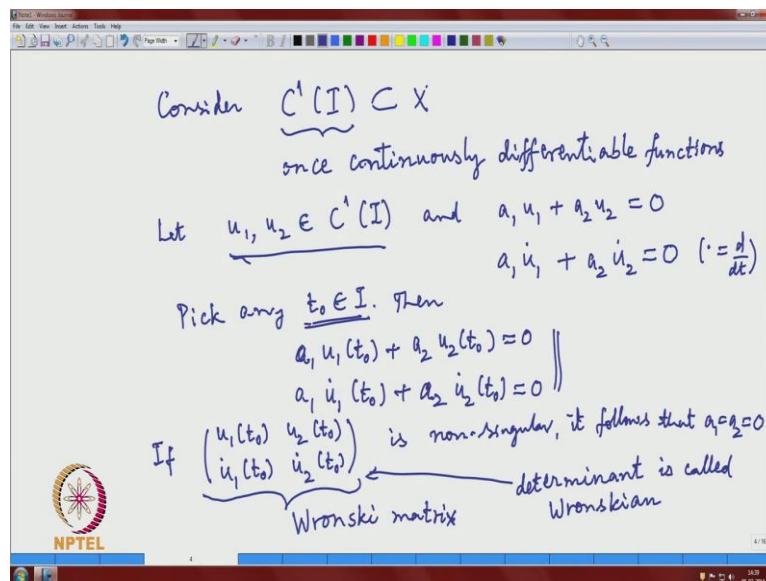 Note1 - Windows Journal
File Edit View Insert Actions Tools Help
Page Width
Consider C¹(I) ⊂ X
once continuously differentiable functions
Let u₁, u₂ ∈ C¹(I) and a₁u₁ + a₂u₂ = 0
a₁u̇₁ + a₂u̇₂ = 0 (· = d/dt)
Pick any t₀ ∈ I. Then
a₁u₁(t₀) + a₂u₂(t₀) = 0
a₁u̇₁(t₀) + a₂u̇₂(t₀) = 0
If (u₁(t₀) u₂(t₀) is non-singular, it follows that a₁=a₂=0
u̇₁(t₀) u̇₂(t₀))
determinant is called
Wronski matrix Wronskian
NPTEL
4
4/16
14:39